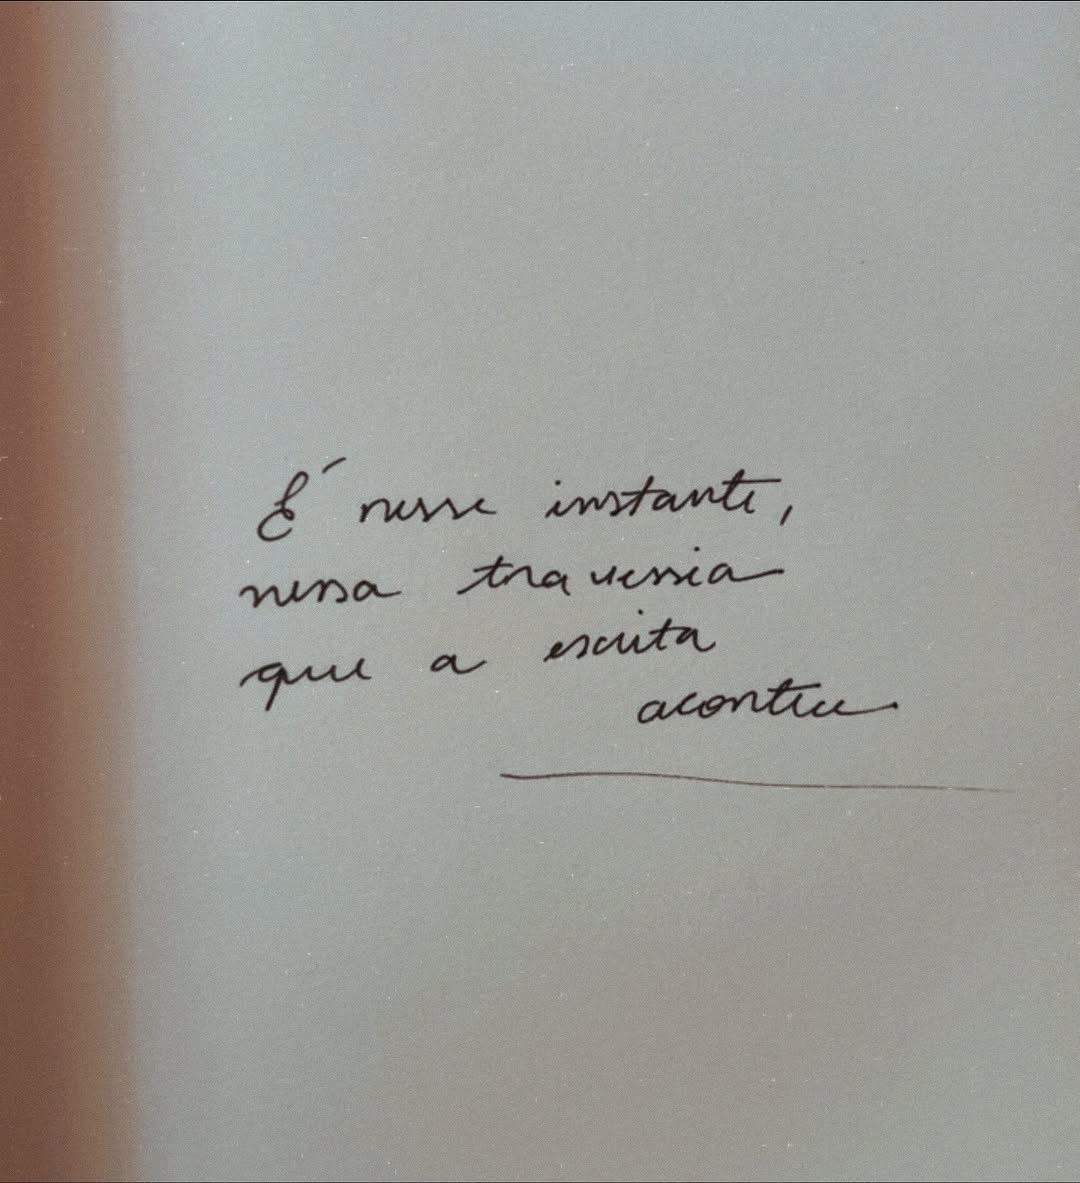 É nesse instante,
nessa travessia
que a escrita
acontece.